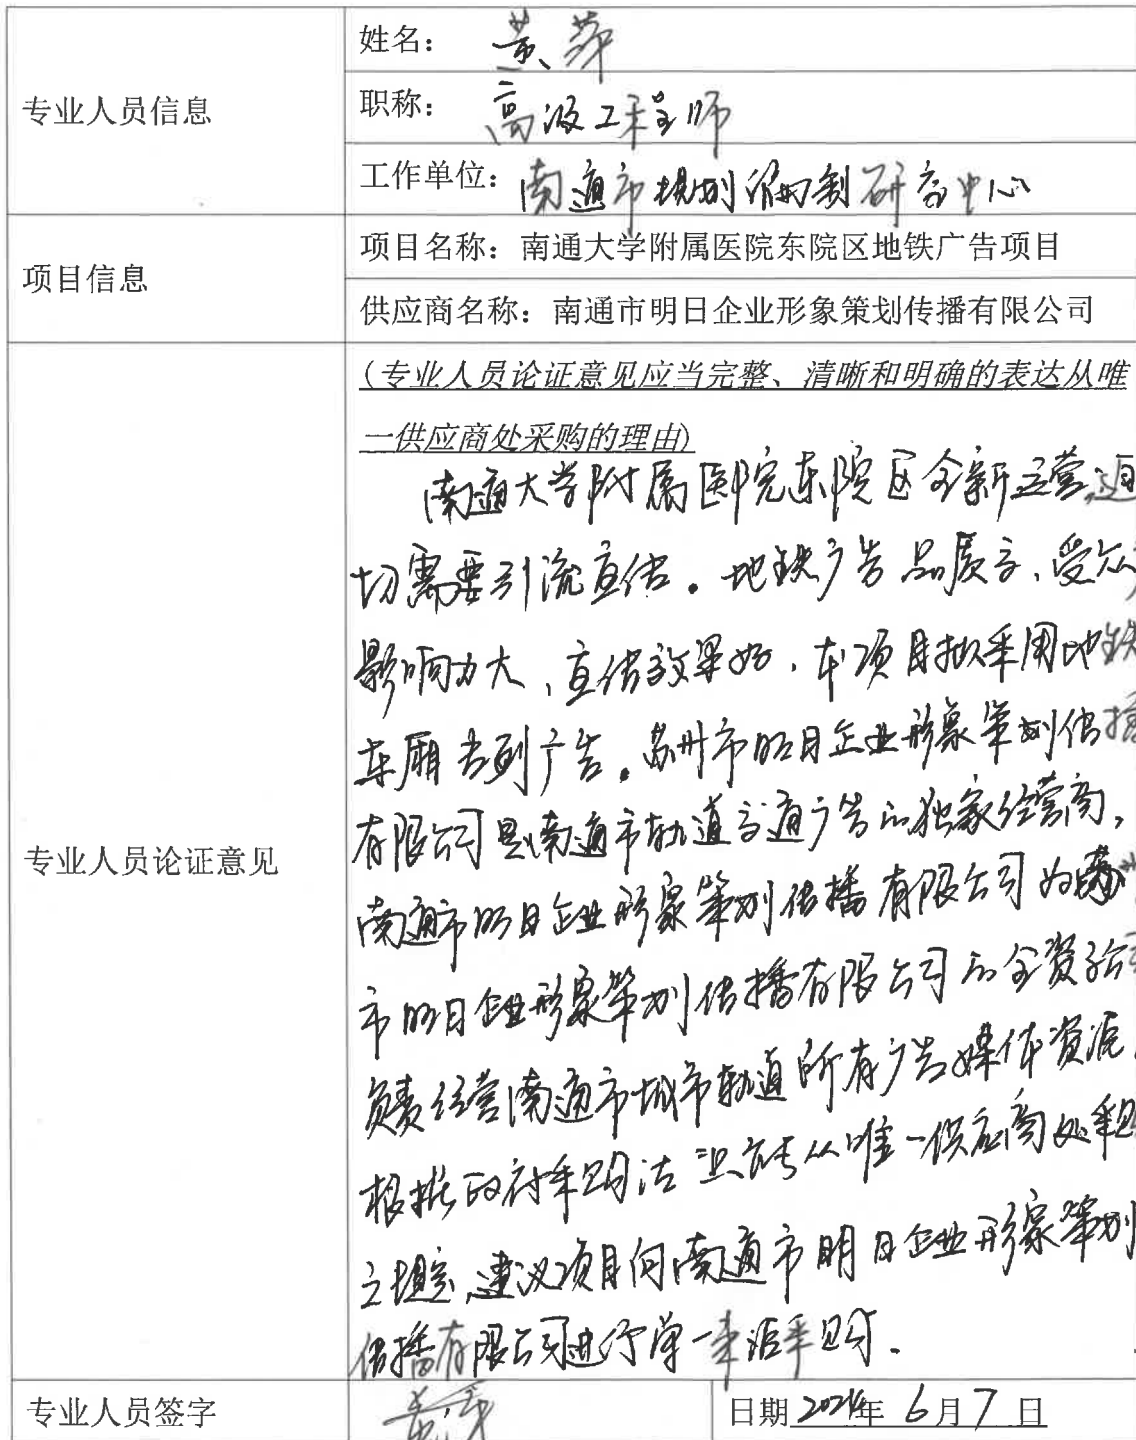 专业人员信息
姓名： 黄萍
职称： 高级工程师
工作单位： 南通市规划编制研究中心
项目信息
项目名称：南通大学附属医院东院区地铁广告项目
供应商名称：南通市明日企业形象策划传播有限公司
专业人员论证意见
（专业人员论证意见应当完整、清晰和明确的表达从唯
一供应商处采购的理由）
南通大学附属医院东院区全新运营，迫
切需要引流宣传。地铁广告品质高、受众
影响力大、宣传效果好，本项目拟采用地铁
车厢专列广告。苏州市明日企业形象策划传播
有限公司是南通市轨道交通广告的独家经营商，
南通市明日企业形象策划传播有限公司为苏州
市明日企业形象策划传播有限公司的全资子公司
负责经营南通市城市轨道所有广告媒体资源
根据政府采购法 只能从唯一供应商处采购
之规定，建议项目向南通市明日企业形象策划
传播有限公司进行单一来源采购。
专业人员签字
黄萍
日期 2024年 6月7日